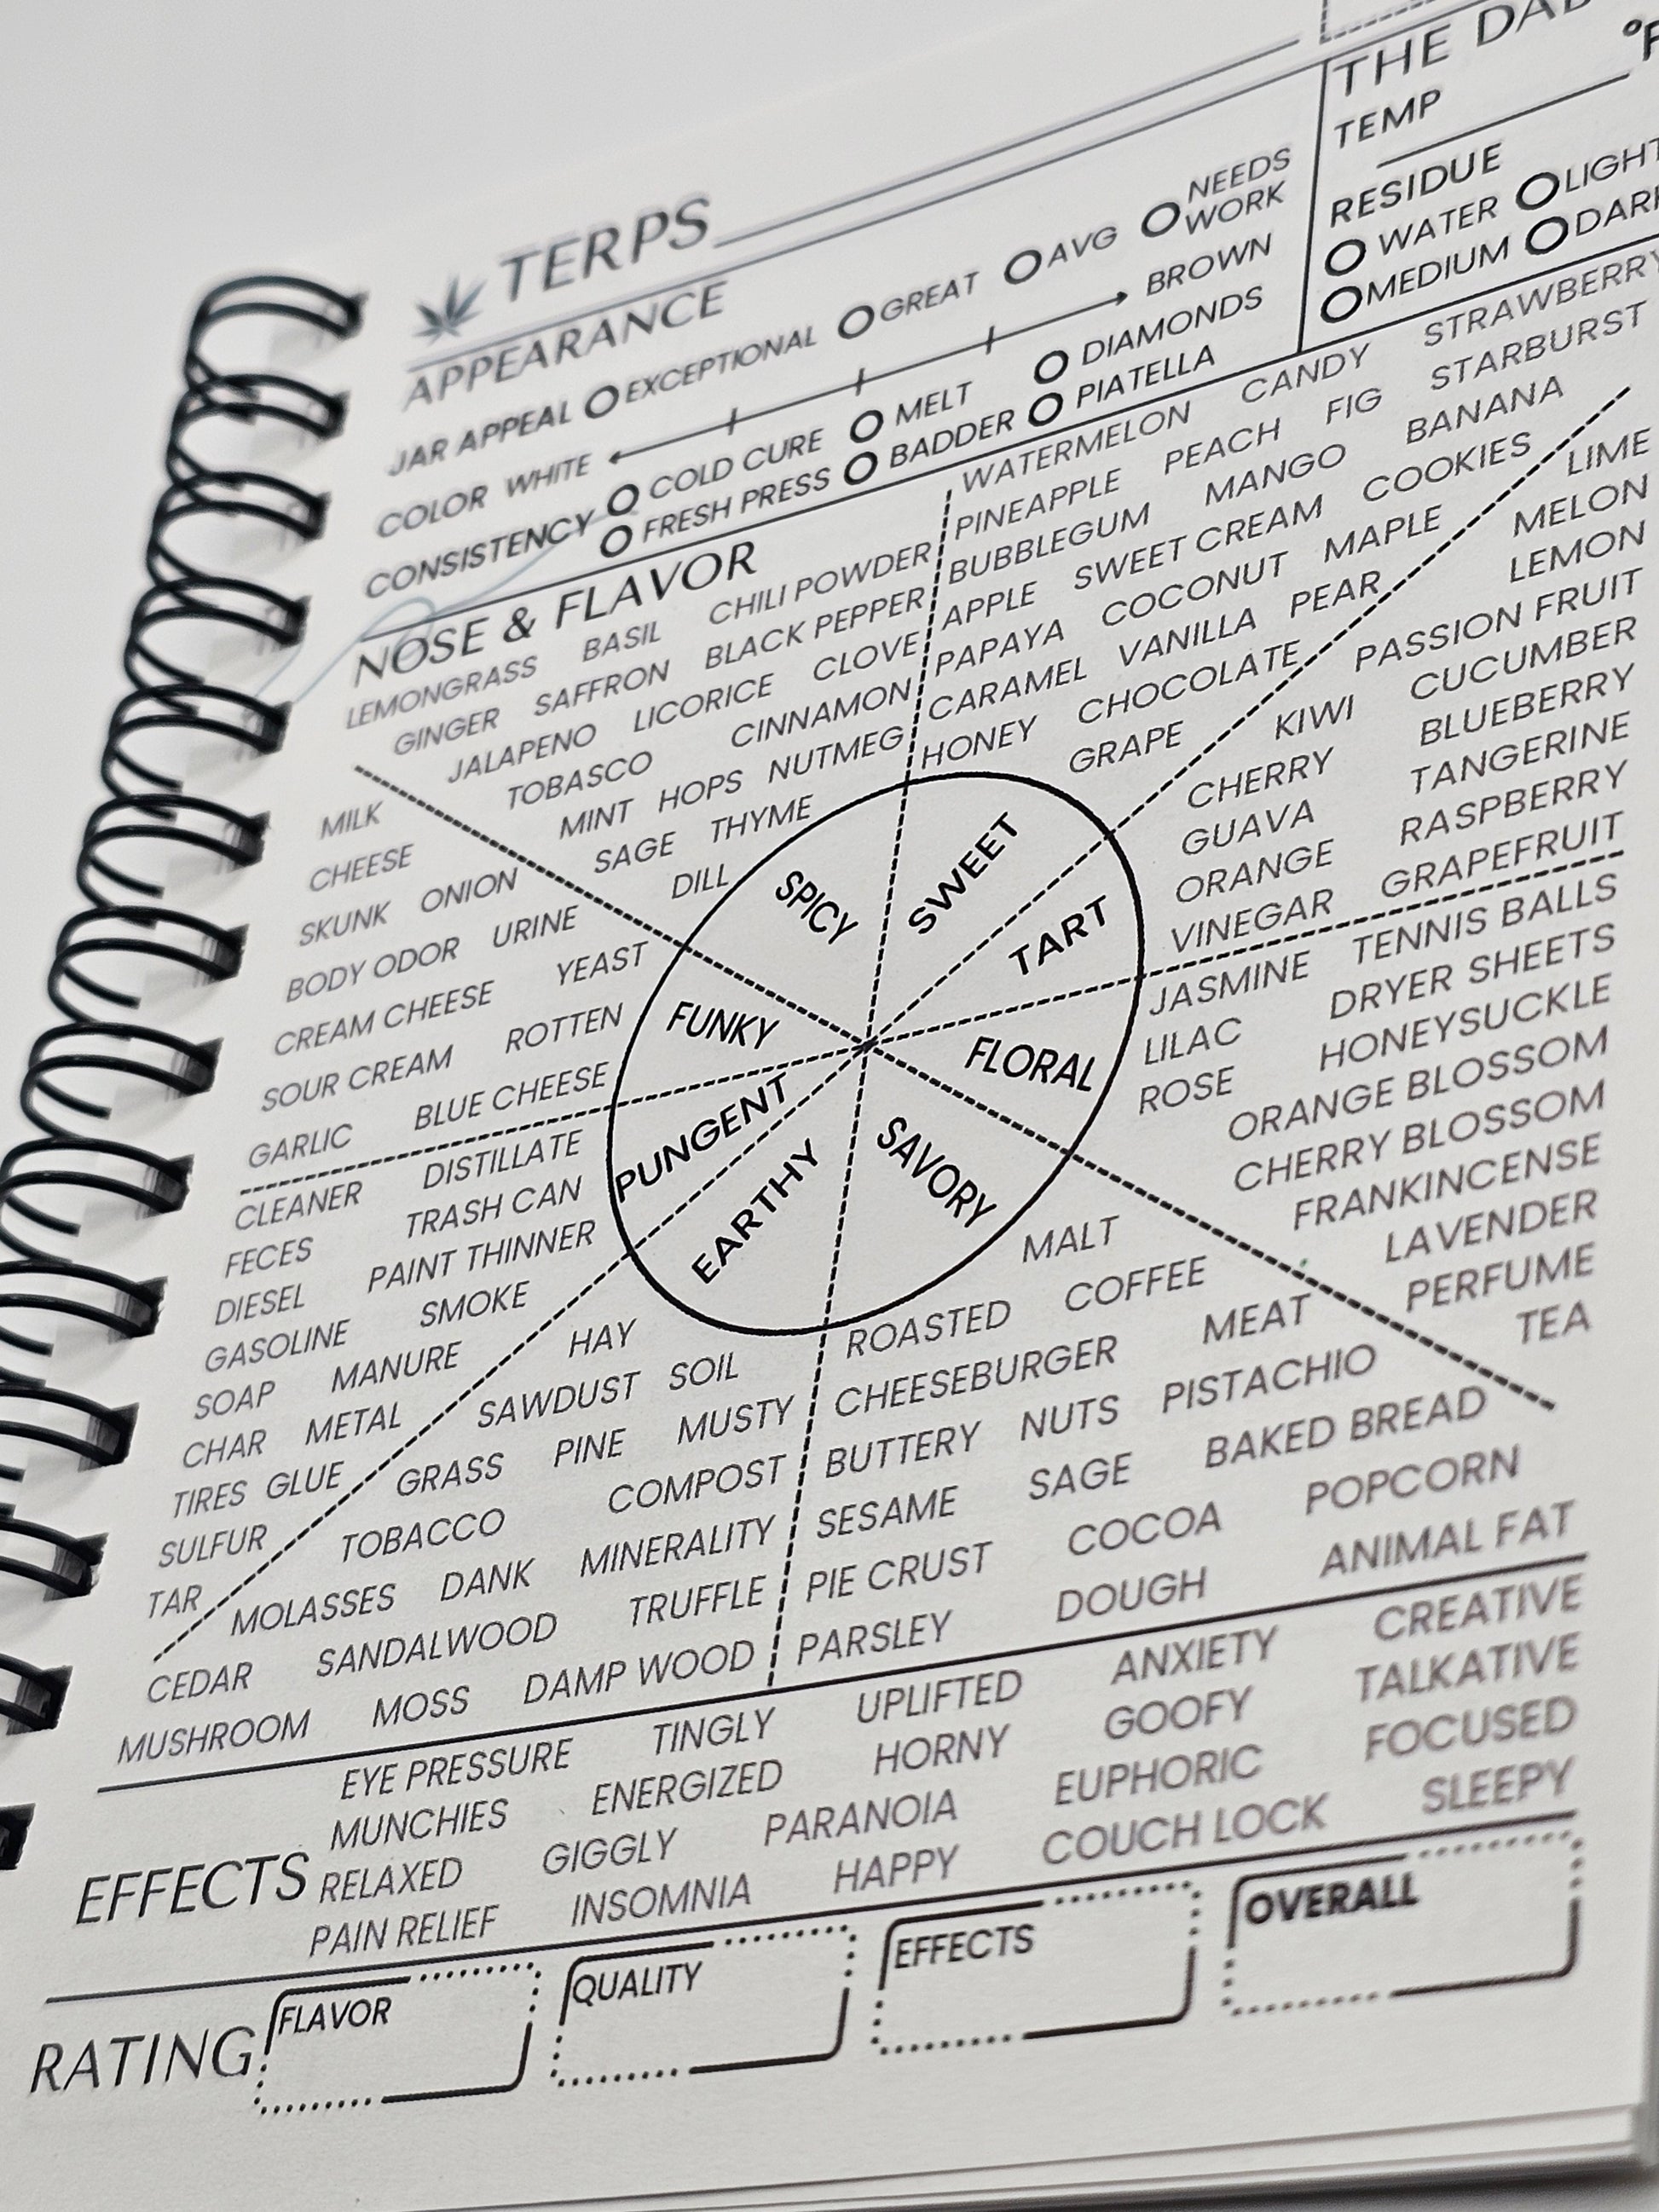 TERPS
THE DAB
TEMP °F
APPEARANCE
JAR APPEAL EXCEPTIONAL GREAT AVG NEEDS WORK
COLOR WHITE BROWN
CONSISTENCY COLD CURE MELT DIAMONDS
FRESH PRESS BADDER PIATELLA
RESIDUE
WATER LIGHT
MEDIUM DARK
NOSE & FLAVOR
LEMONGRASS BASIL CHILI POWDER
GINGER SAFFRON BLACK PEPPER
JALAPENO LICORICE CLOVE
TOBASCO CINNAMON
MINT HOPS NUTMEG
SAGE THYME
DILL
WATERMELON CANDY STRAWBERRY
PINEAPPLE PEACH FIG STARBURST
BUBBLEGUM MANGO BANANA
APPLE SWEET CREAM COOKIES
PAPAYA COCONUT MAPLE
CARAMEL VANILLA PEAR
HONEY CHOCOLATE
GRAPE
LIME
MELON
LEMON
PASSION FRUIT
KIWI CUCUMBER
CHERRY BLUEBERRY
GUAVA TANGERINE
ORANGE RASPBERRY
VINEGAR GRAPEFRUIT
MILK
CHEESE
SKUNK ONION
BODY ODOR URINE
CREAM CHEESE YEAST
SOUR CREAM ROTTEN
GARLIC BLUE CHEESE
SPICY
SWEET
TART
FUNKY
FLORAL
PUNGENT
EARTHY
SAVORY
JASMINE TENNIS BALLS
LILAC DRYER SHEETS
ROSE HONEYSUCKLE
ORANGE BLOSSOM
CHERRY BLOSSOM
FRANKINCENSE
LAVENDER
PERFUME
TEA
CLEANER DISTILLATE
FECES TRASH CAN
DIESEL PAINT THINNER
GASOLINE SMOKE
SOAP MANURE
CHAR METAL
TIRES GLUE
SULFUR
TAR
HAY
SAWDUST SOIL
GRASS PINE MUSTY
TOBACCO COMPOST
MOLASSES DANK MINERALITY
CEDAR SANDALWOOD TRUFFLE
MUSHROOM MOSS DAMP WOOD
MALT
ROASTED COFFEE
CHEESEBURGER MEAT
BUTTERY NUTS PISTACHIO
SESAME SAGE BAKED BREAD
PIE CRUST COCOA POPCORN
PARSLEY DOUGH ANIMAL FAT
EFFECTS
EYE PRESSURE TINGLY UPLIFTED ANXIETY CREATIVE
MUNCHIES ENERGIZED HORNY GOOFY TALKATIVE
RELAXED GIGGLY PARANOIA EUPHORIC FOCUSED
PAIN RELIEF INSOMNIA HAPPY COUCH LOCK SLEEPY
RATING FLAVOR QUALITY EFFECTS OVERALL